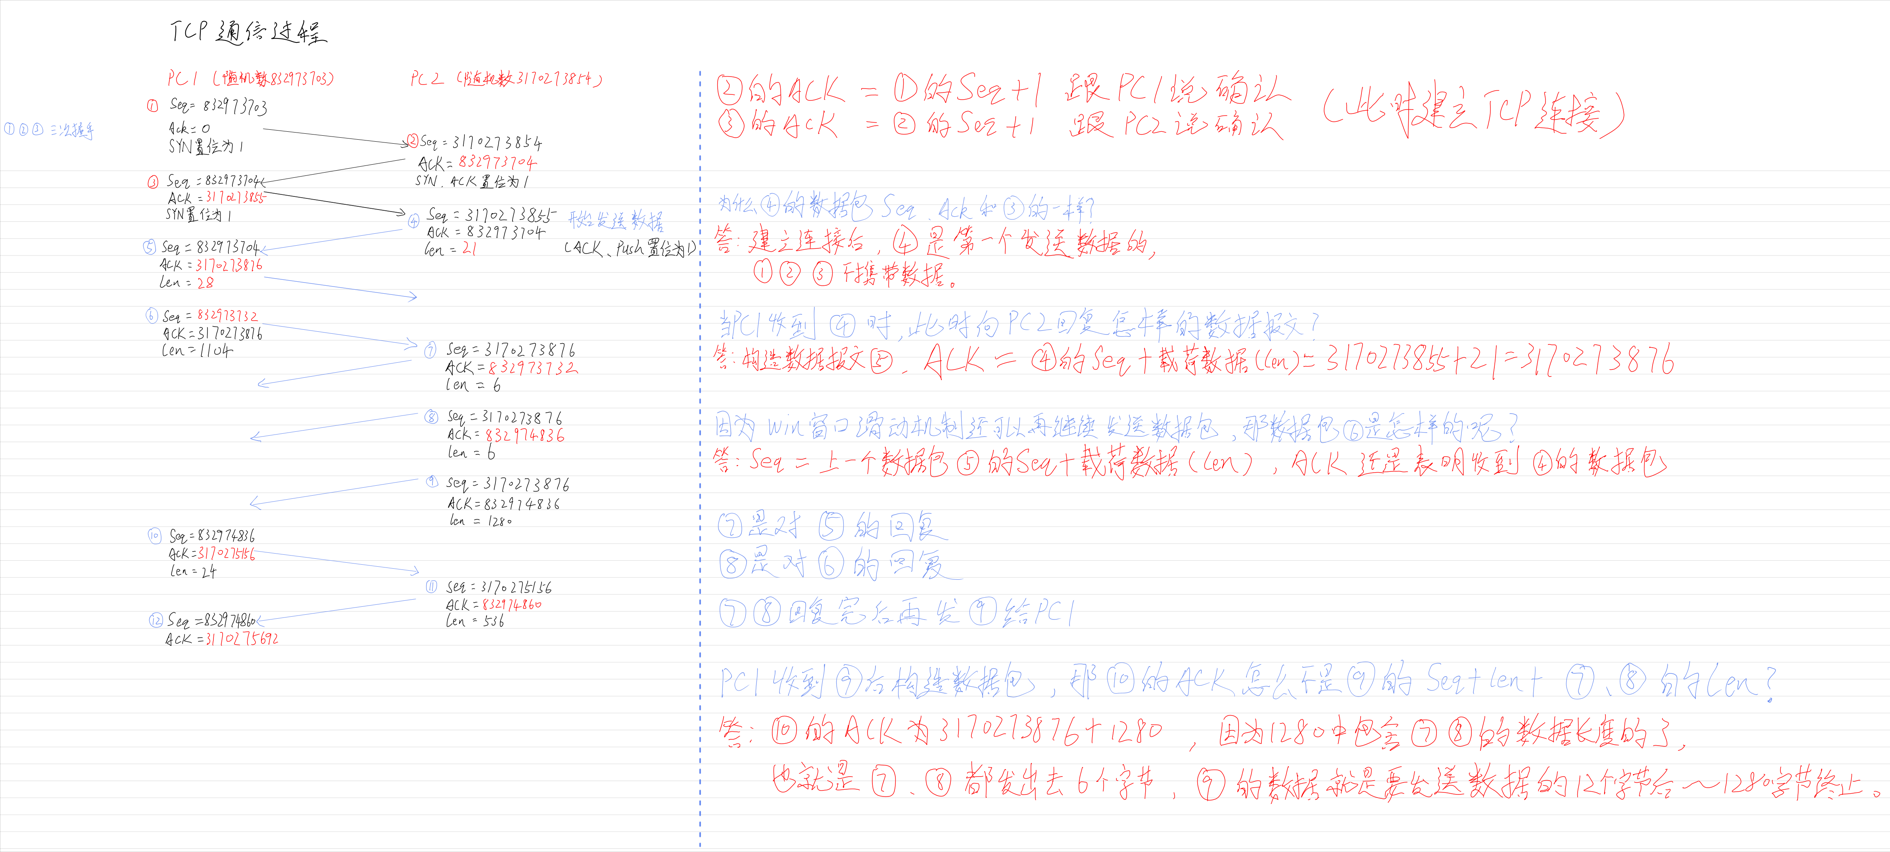 TCP通信过程
PC1 (随机数832973703)
PC2 (随机数3170273854)
①②③ 三次握手
① Seq = 832973703
Ack = 0
SYN置位为1
② Seq = 3170273854
ACK = 832973704
SYN、ACK置位为1
③ Seq = 832973704
ACK = 3170273855
SYN置位为1
④ Seq = 3170273855 开始发送数据
ACK = 832973704
len = 21 (ACK、Push置位为1)
⑤ Seq = 832973704
ACK = 3170273876
len = 28
⑥ Seq = 832973732
ACK = 3170273876
len = 1104
⑦ Seq = 3170273876
ACK = 832973732
len = 6
⑧ Seq = 3170273876
ACK = 832974836
len = 6
⑨ Seq = 3170273876
ACK = 832974836
len = 1280
⑩ Seq = 832974836
ACK = 3170275156
len = 24
⑪ Seq = 3170275156
ACK = 832974860
len = 536
⑫ Seq = 832974860
ACK = 3170275692
②的ACK = ①的Seq+1 跟PC1说确认
③的ACK = ②的Seq+1 跟PC2说确认
(此时建立TCP连接)
为什么④的数据包 Seq、Ack 和③的一样?
答: 建立连接后, ④是第一个发送数据的,
①②③不携带数据。
当PC1收到④时, 此时向PC2回复怎样的数据报文?
答: 构造数据报文⑤、ACK = ④的Seq+载荷数据(len) = 3170273855+21=3170273876
因为Win窗口滑动机制还可以再继续发送数据包, 那数据包⑥是怎样的呢?
答: Seq = 上一个数据包⑤的Seq+载荷数据(len), ACK 还是表明收到④的数据包
⑦是对⑤的回复
⑧是对⑥的回复
⑦⑧回复完后再发⑨给PC1
PC1收到⑨后构造数据包, 那⑩的ACK怎么不是⑨的Seq+len+⑦、⑧的len?
答: ⑩的ACK为3170273876+1280, 因为1280中包含⑦⑧的数据长度的了,
也就是⑦、⑧都发出去6个字节, ⑨的数据就是要发送数据的12个字节后~1280字节终止。